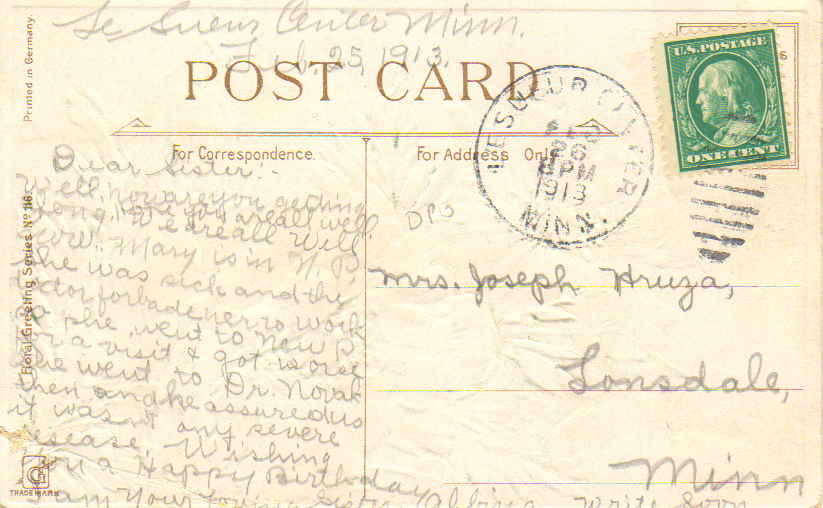 Le Sueur Center Minn.
Feb. 25, 1913.
POST CARD
Printed in Germany.
U.S. POSTAGE
ONE CENT
LE SUEUR CENTER
FEB
26
PM
1913
MINN.
For Correspondence.
For Address Only.
DPO
Floral Greeting Series No 116.
Dear Sister:
Well, how are you getting
along, are you all well
We are all well
now. Mary is in N. P.
she was sick and the
doctor forbade her to work
so she went to New P.
for a visit & got worse
she went to Dr. Novak
then and he assured us
it wasn't any severe
disease. Wishing
you a Happy Birthday
I am Your loving Sister Albina Write soon
Mrs. Joseph Hruza,
Lonsdale,
Minn
TRADE MARK